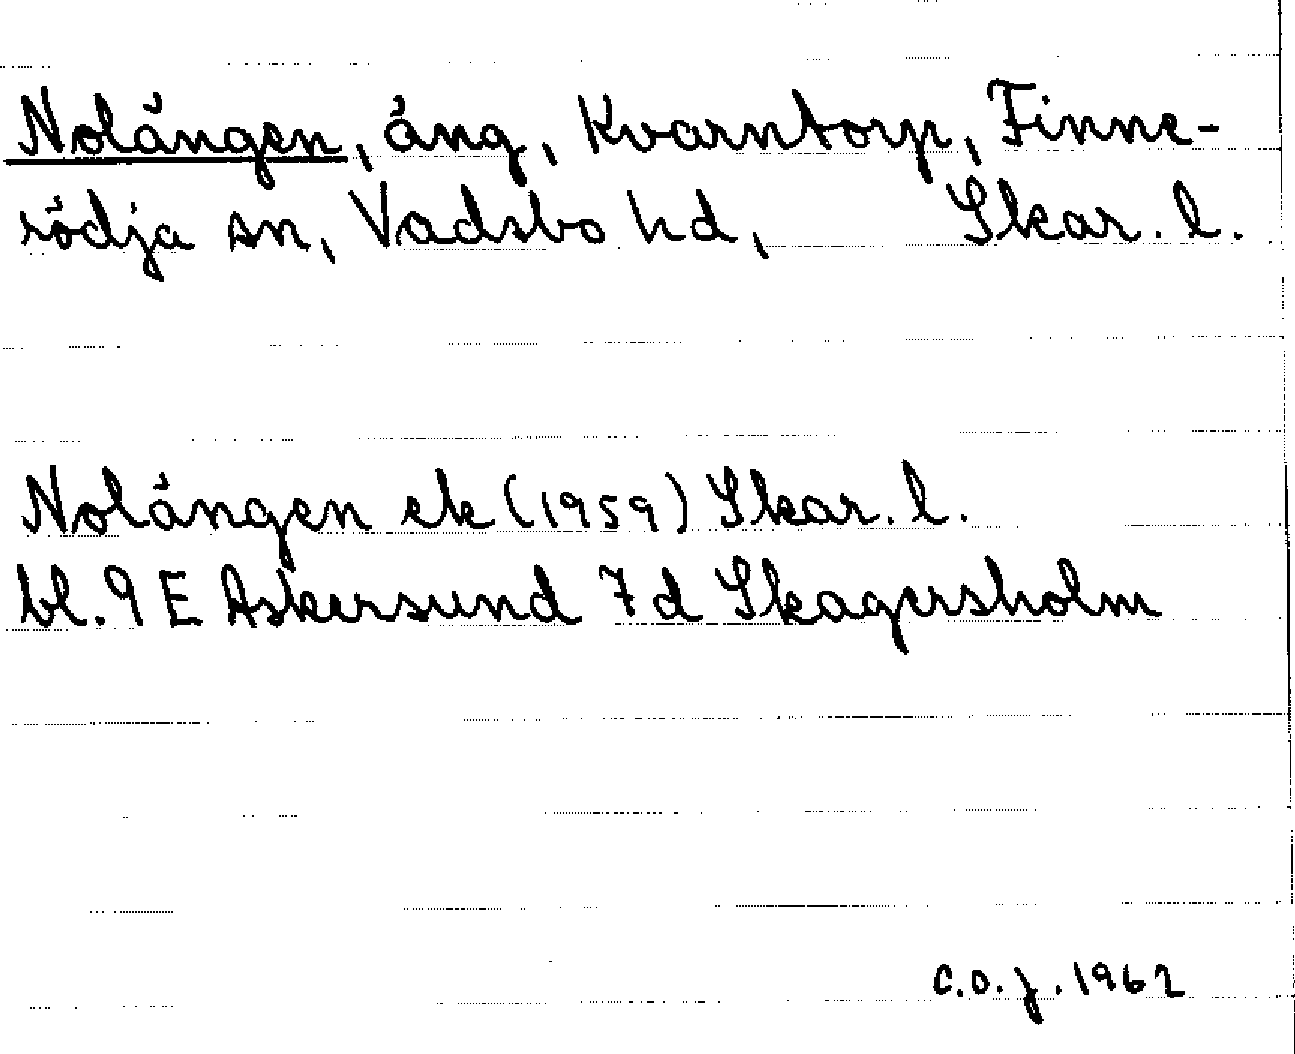 Nolängen, äng, Kvarntorp, Finne-
rödja sn, Vadsbo hd, Skar. l.
Nolängen ek (1959) Skar. l.
bl. 9 E Askersund 7d Skagersholm
C.O.J. 1962